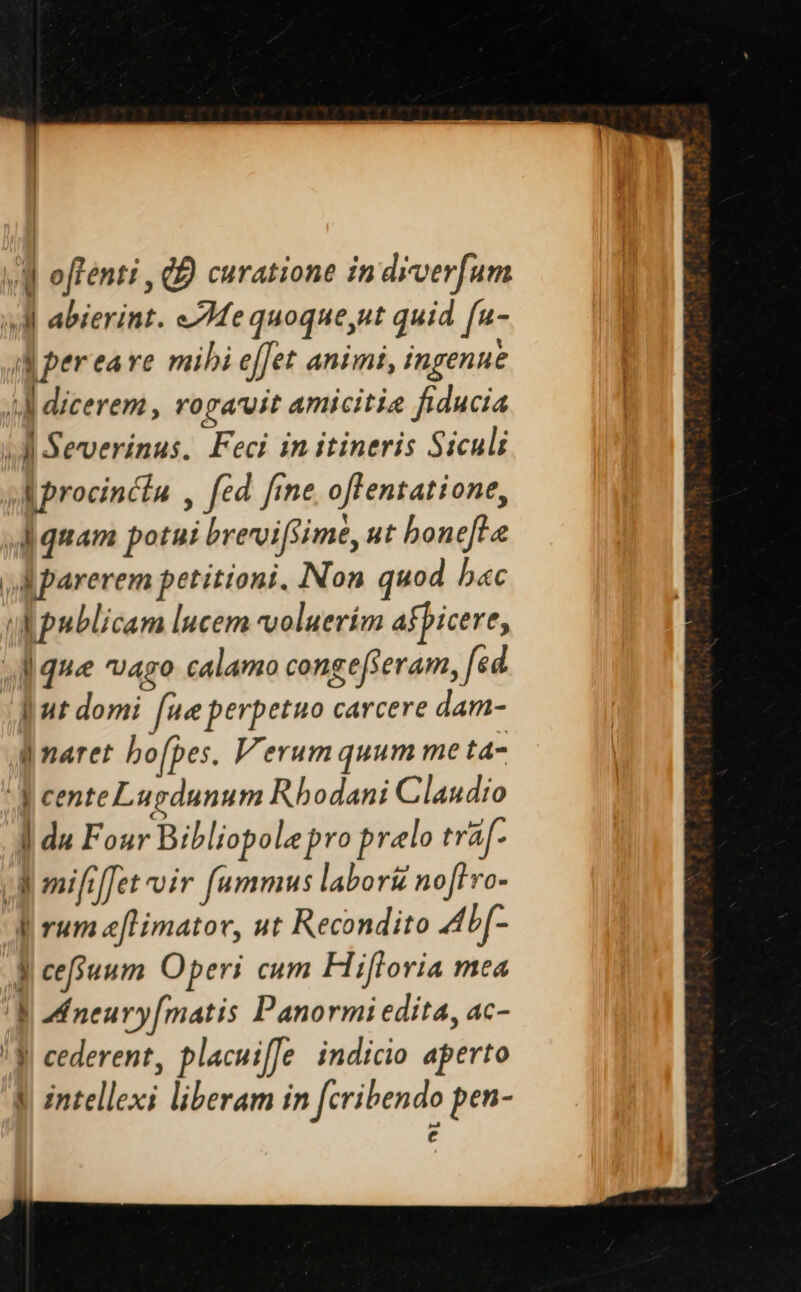 oſtenti, & curatione in diverſum
abierint. Me quoque, ut quid ſu-
per ea re mihi eſſet animi, ingenuè
dicerem, rogavit amicitiæ fiducia
Severinus. Feci in itineris Siculi
procinctu, ſed ſine oſtentatione,
quam potui breviſsimè, ut honeſtæ
parerem petitioni. Non quod hæc
publicam lucem voluerim aſpicere,
quæ vago calamo congeſseram, ſed
ut domi ſuæ perpetuo carcere dam-
naret hoſpes. Verum quum me ta-
cente Lugdunum Rhodani Claudio
du Four Bibliopolæ pro prælo trãſ-
miſiſſet vir ſummus laborũ noſtro-
rum æſtimator, ut Recondito Abſ-
ceſsuum Operi cum Hiſtoria mea
Aneuryſmatis Panormi edita, ac-
cederent, placuiſſe indicio aperto
intellexi liberam in ſcribendo pen-
ẽ